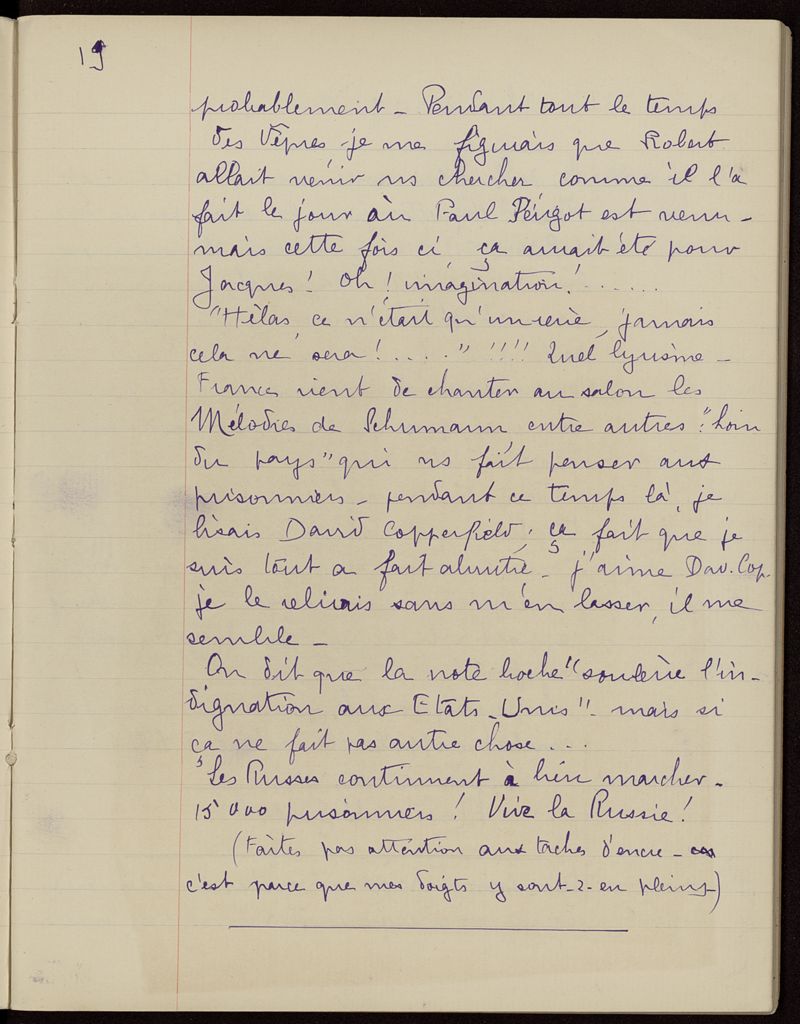 19
probablement - Pendant tout le temps
des Vêpres je me figurais que Robert
allait venir ns chercher, comme il l'a
fait le jour où Paul Périgot est venu -
mais cette fois ci, ça aurait été pour
Jacques ! Oh ! imagination ! ......
"Hélas, ce n'était qu'un rêve, jamais
cela ne sera ! ....." !!!! Quel lyrisme -
France vient de chanter au salon les
Mélodies de Schumann entre autres : "Loin
du pays" qui ns fait penser aux
prisonniers - pendant ce temps là, je
lisais David Copperfield ; ça fait que je
suis tout a fait abrutie - j'aime Dav. Cop.
je le relirais sans m'en lasser, il me
semble -
On dit que la note boche "soulève l'in-
dignation aux Etats-Unis" - mais si
ça ne fait pas autre chose ...
Les Russes continuent à bien marcher -
15 000 prisonniers ! Vive la Russie !
(Faites pas attention aux taches d'encre -
c'est parce que mes doigts y sont-z-en pleins -)